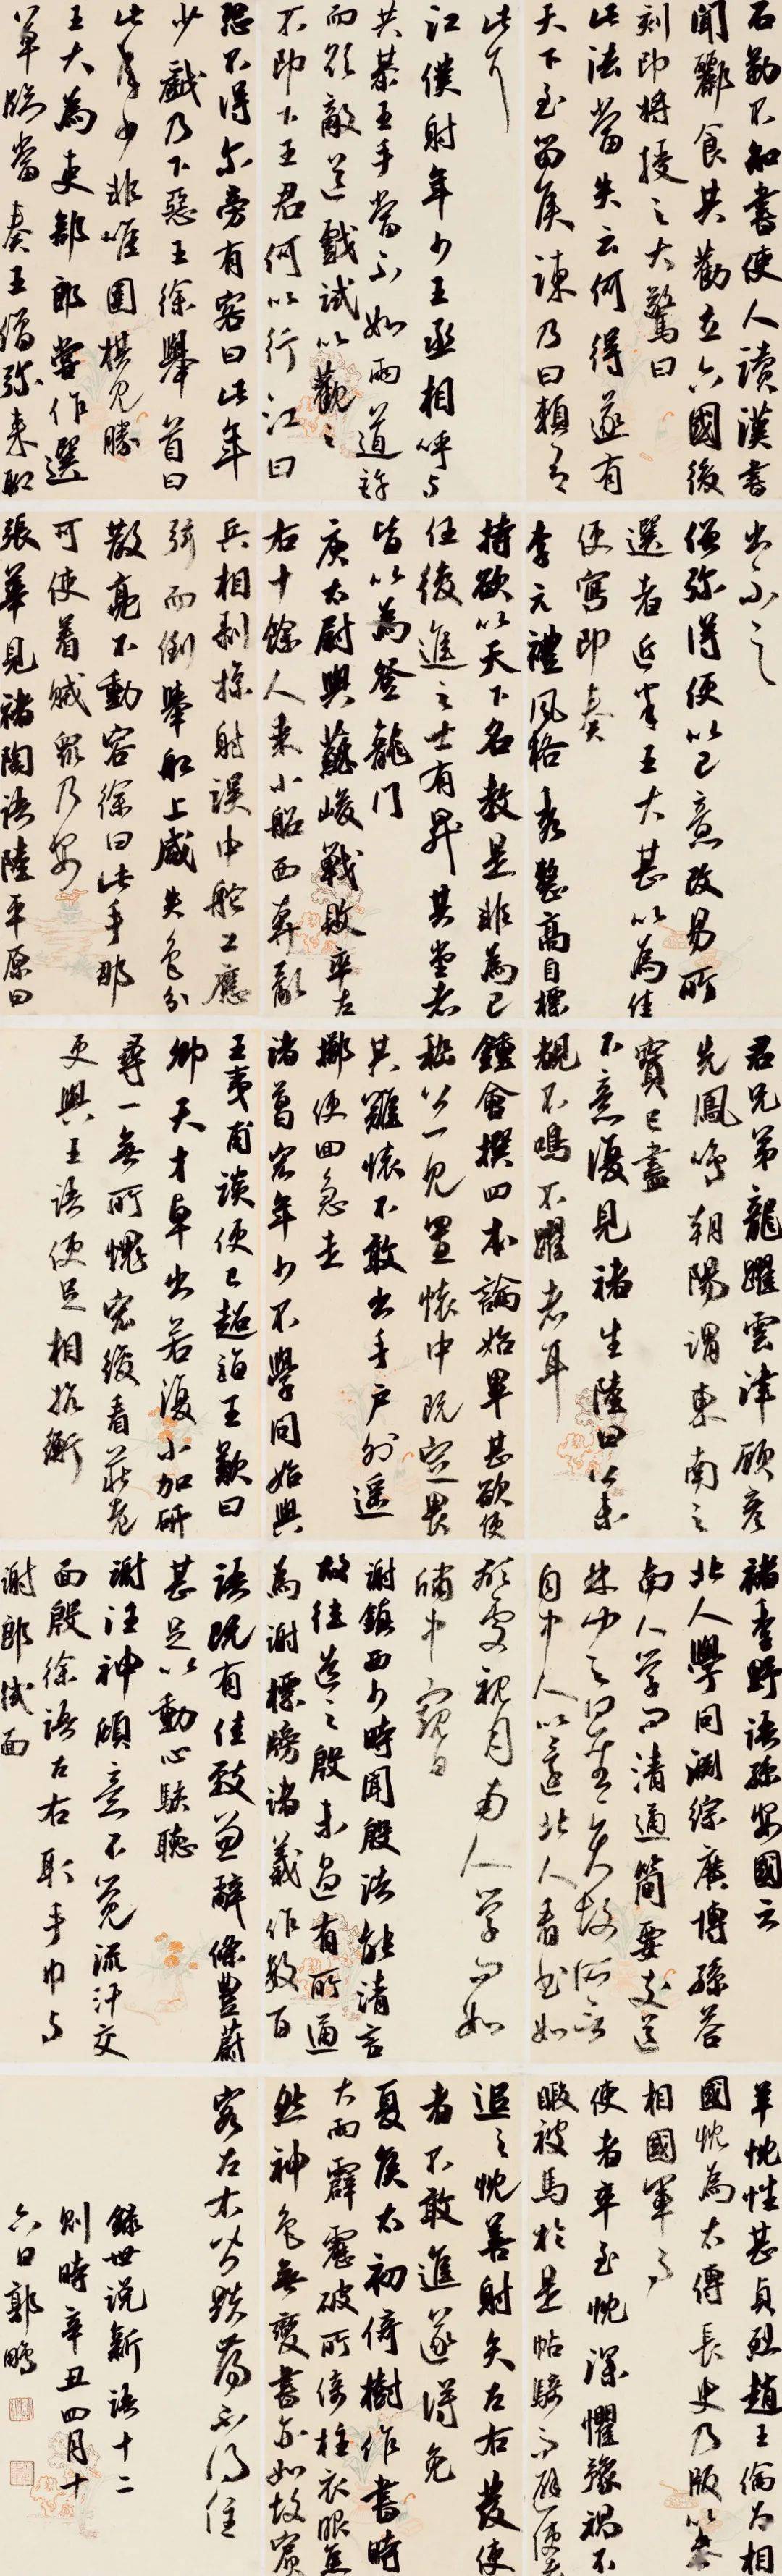 石勒不知書使人讀漢書
聞酈食其勸立六國後
刻印將授之大驚曰
此法當失云何得遂有
天下至留侯諫乃曰賴有
此耳
江僕射年少王丞相呼與
共棊王手嘗不如兩道許
而欲敵道戲試以觀之
不即下王君何以不行江曰
恐不得爾旁有客曰此年
少戲乃不惡王徐舉首曰
此年少非唯圍棋見勝
王大為吏部郎嘗作選
草臨當奏王僧彌來聊
出示之
僧彌得便以己意改易所
選者近半王大甚以為佳
便寫即奏
李元禮風格秀整高自標
持欲以天下名教是非為己
任後進之士有昇其堂者
皆以為登龍門
庾太尉與蘇峻戰敗率左
右十餘人乘小船西奔亂
兵相剝掠射誤中舵工應
弦而倒舉船上咸失色分
散亮不動容徐曰此手那
可使著賊眾乃安
張華見褚陶語陸平原曰
君兄弟龍躍雲津顧彥
先鳳鳴朝陽謂東南之
寶已盡
不意復見褚生陸曰公未
覩不鳴不躍者耳
鍾會撰四本論始畢甚欲使
嵇公一見置懷中既定畏
其難懷不敢出于戶外遥
擲便回急走
諸葛宏年少不學問始與
王夷甫談便已超詣王歎曰
卿天才卓出若復小加研
尋一無所愧宏後看莊老
更與王語便足相抗衡
褚季野語孫安國云
北人學問淵綜廣博孫答
南人学问清通簡要支道
林聞之曰聖賢故所忘言
自中人以還北人看书如
顯處視月南人学问如
牖中窺日
謝鎮西少時聞殷浩能清言
故往造之殷未過有所通
為謝標牓諸義作數百
語既有佳致兼辭條豐蔚
甚足以動心駭聽
謝注神傾意不覺流汗交
面殷徐語左右取手巾與
謝郎拭面
羊忱性甚貞烈趙王倫為相
國忱為太傅長史乃版以參
相國軍事
使者卒至忱深懼豫禍不
暇被馬於是帖騎而避使者
追之忱善射矢左右發使
者不敢進遂得免
夏侯太初倚樹作書時
大雨霹靂破所倚柱衣服焦
然神色無變書亦如故賓
客左右皆跌蕩不得住
錄世说新語十二
则時辛丑四月十
六日郭鵬